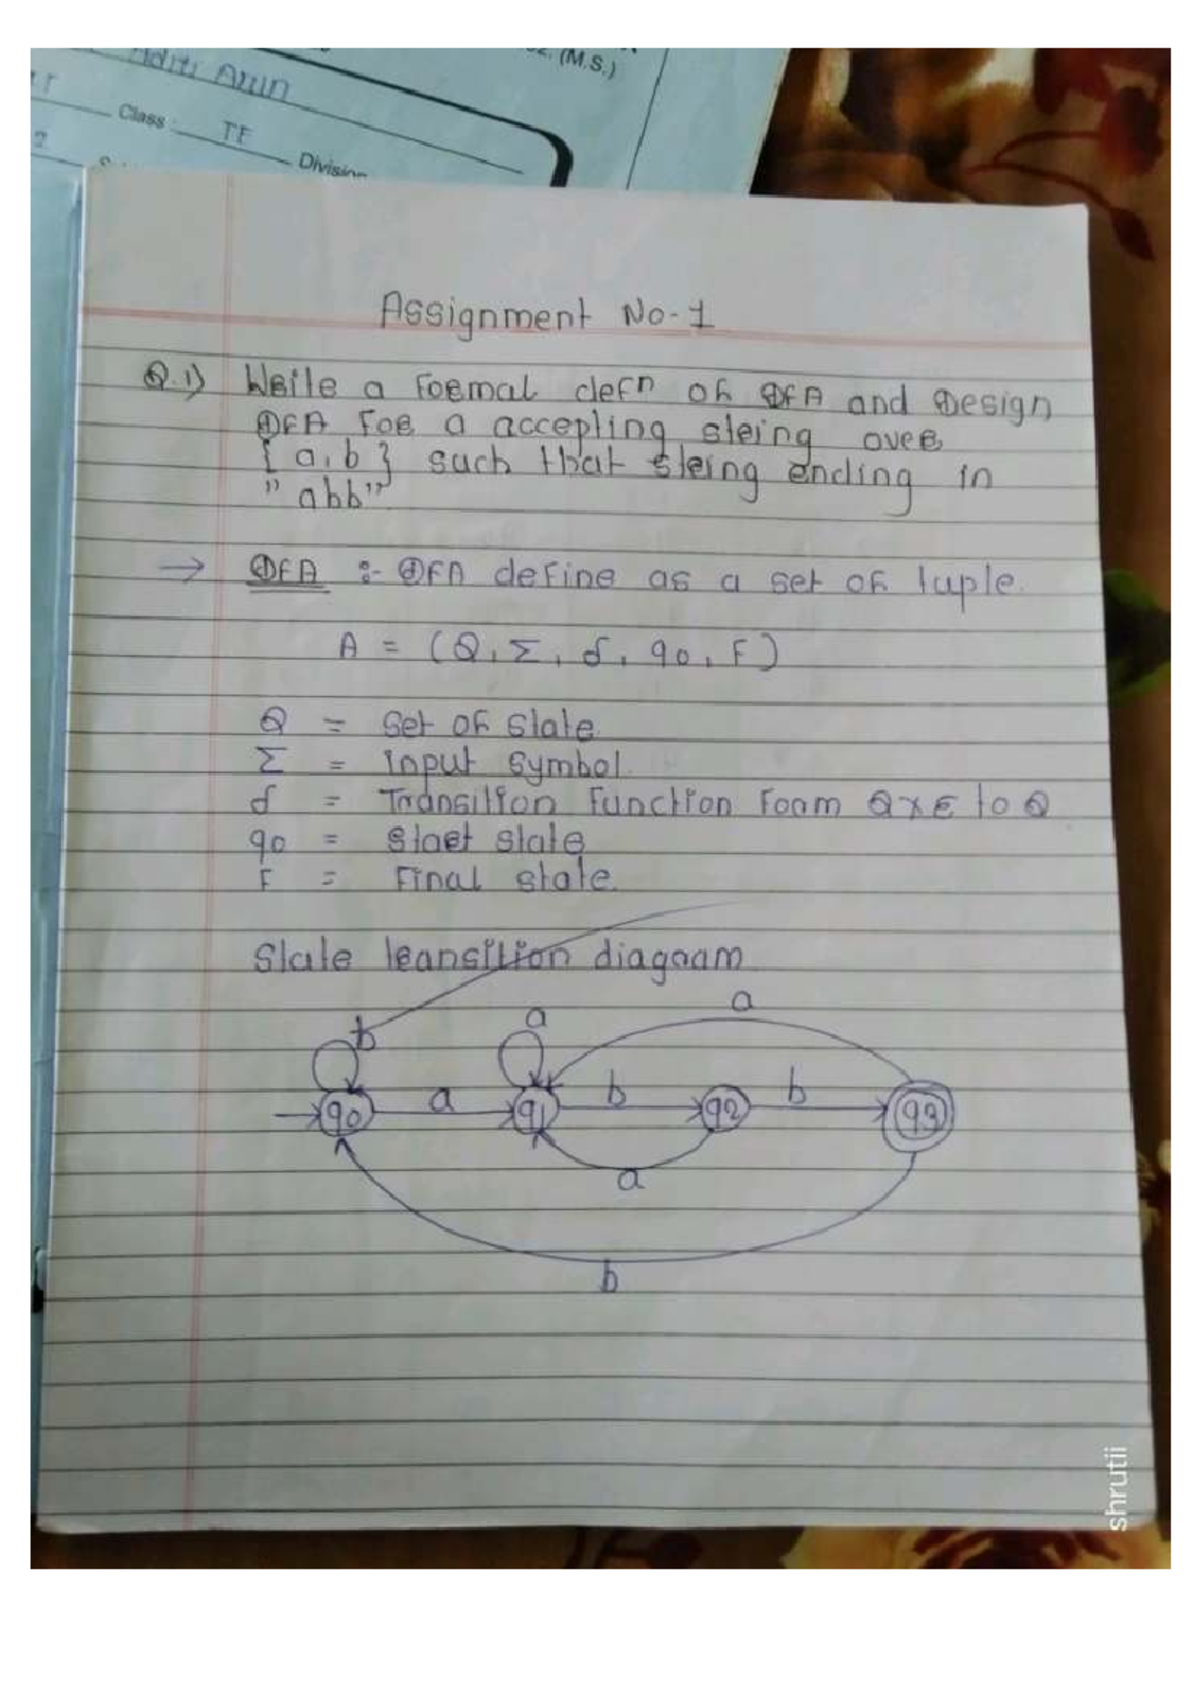 (M.S.)
Aditi Arun
Class: TE
Division
Assignment No-1
Q.1) Write a Formal defn of DFA and Design
DFA For a accepting string over
{a,b} such that string ending in
"abb"
→ DFA :- DFA define as a set of tuple.
A = (Q, Σ, δ, q0, F)
Q = Set of State
Σ = Input Symbol.
δ = Transition Function From Q×Σ to Q
q0 = Start State
F = Final State.
State transition diagram
b a a
q0 a q1 b q2 b q3
a
b
shrutii